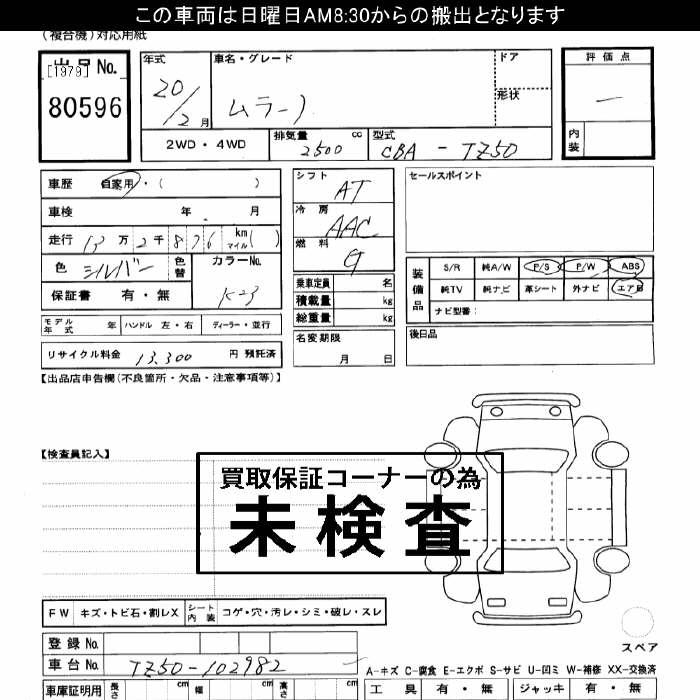 この車両は日曜日AM8:30からの搬出となります
(複合機)対応用紙
出品No.
[1979]
80596
年式
20/12月
車名・グレード
ムラーノ
ドア
形状
評価点
―
内装
2WD・4WD
排気量 2500 cc
型式 CBA-TZ50
車歴 自家用・( )
車検 年 月
走行 13万2千876 km マイル( )
色 シルバー 色替
カラーNo. K23
保証書 有・無
モデル年式 年 ハンドル 左・右 ディーラー・並行
リサイクル料金 13,300 円 預託済
シフト AT
冷房 AAC
燃料 G
乗車定員 名
積載量 kg
総重量 kg
名変期限
月 日
セールスポイント
装備品
S/R 純A/W P/S P/W ABS
純TV 純ナビ 革シート 外ナビ エアB
ナビ型番:
後日品
【出品店申告欄(不良箇所・欠品・注意事項等)】
【検査員記入】
買取保証コーナーの為
未検査
FW キズ・トビ石・割レX シート内装 コゲ・穴・汚レ・シミ・破レ・スレ
登録No.
車台No. TZ50-102982
車庫証明用 長さ cm 幅 cm 高さ cm
スペア
A-キズ C-腐食 E-エクボ S-サビ U-凹ミ W-補修 XX-交換済
工具 有・無 ジャッキ 有・無